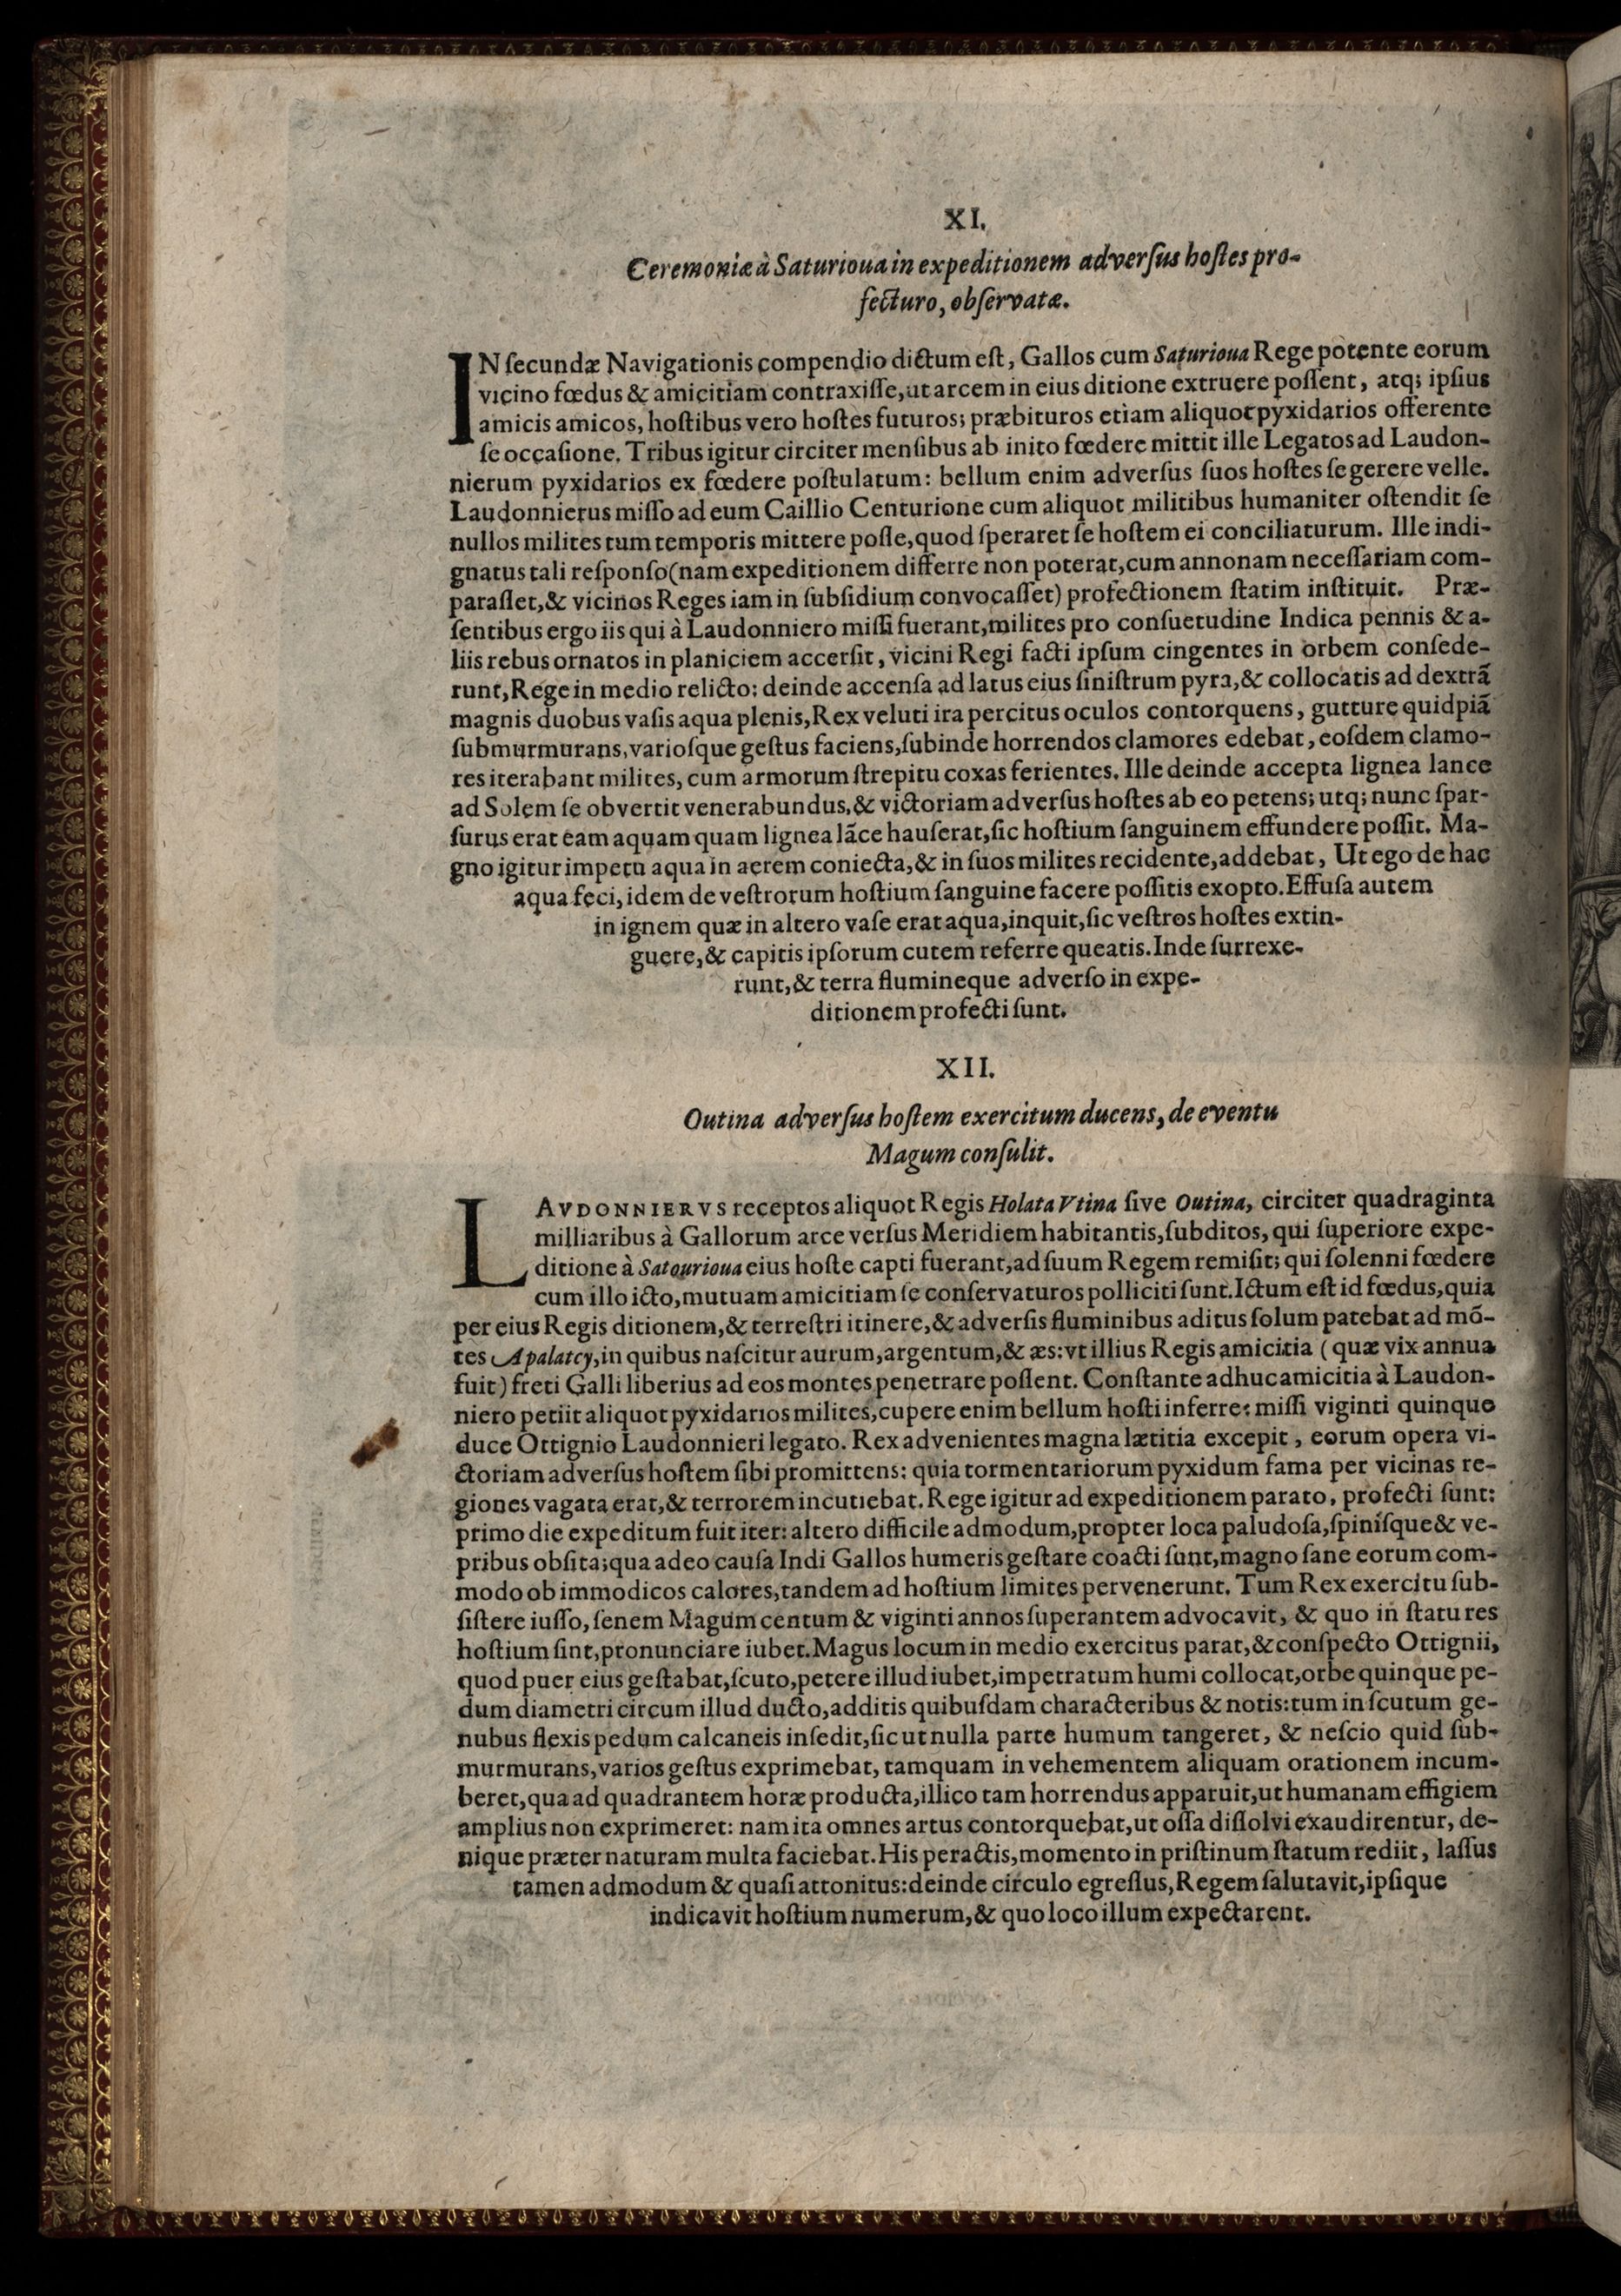 XI.
Ceremoniæ à Saturioua in expeditionem adverſus hoſtes pro-
fecturo, obſervatæ.
IN ſecundæ Navigationis compendio dictum eſt, Gallos cum Saturioua Rege potente eorum
vicino fœdus & amicitiam contraxiſſe, ut arcem in eius ditione extruere poſſent, atq; ipſius
amicis amicos, hoſtibus vero hoſtes futuros; præbituros etiam aliquot pyxidarios offerente
ſe occaſione. Tribus igitur circiter menſibus ab inito fœdere mittit ille Legatos ad Laudon-
nierum pyxidarios ex fœdere poſtulatum: bellum enim adverſus ſuos hoſtes ſe gerere velle.
Laudonnierus miſſo ad eum Caillio Centurione cum aliquot militibus humaniter oſtendit ſe
nullos milites tum temporis mittere poſſe, quod ſperaret ſe hoſtem ei conciliaturum. Ille indi-
gnatus tali reſponſo (nam expeditionem differre non poterat, cum annonam neceſſariam com-
paraſſet, & vicinos Reges iam in ſubſidium convocaſſet) profectionem ſtatim inſtituit. Præ-
ſentibus ergo iis qui à Laudonniero miſſi fuerant, milites pro conſuetudine Indica pennis & a-
liis rebus ornatos in planiciem accerſit, vicini Regi facti ipſum cingentes in orbem conſede-
runt, Rege in medio relicto: deinde accenſa ad latus eius ſiniſtrum pyra, & collocatis ad dextrã
magnis duobus vaſis aqua plenis, Rex veluti ira percitus oculos contorquens, gutture quidpiã
ſubmurmurans, varioſque geſtus faciens, ſubinde horrendos clamores edebat, eoſdem clamo-
res iterabant milites, cum armorum ſtrepitu coxas ferientes. Ille deinde accepta lignea lance
ad Solem ſe obvertit venerabundus, & victoriam adverſus hoſtes ab eo petens; utq; nunc ſpar-
ſurus erat eam aquam quam lignea lãce hauſerat, ſic hoſtium ſanguinem effundere poſſit. Ma-
gno igitur impetu aqua in aerem coniecta, & in ſuos milites recidente, addebat, Ut ego de hac
aqua feci, idem de veſtrorum hoſtium ſanguine facere poſſitis exopto. Effuſa autem
in ignem quæ in altero vaſe erat aqua, inquit, ſic veſtros hoſtes extin-
guere, & capitis ipſorum cutem referre queatis. Inde ſurrexe-
runt, & terra flumineque adverſo in expe-
ditionem profecti ſunt.
XII.
Outina adverſus hoſtem exercitum ducens, de eventu
Magum conſulit.
LAVDONNIERVS receptos aliquot Regis Holata Vtina ſive Outina, circiter quadraginta
milliaribus à Gallorum arce verſus Meridiem habitantis, ſubditos, qui ſuperiore expe-
ditione à Satourioua eius hoſte capti fuerant, ad ſuum Regem remiſit; qui ſolenni fœdere
cum illo icto, mutuam amicitiam ſe conſervaturos polliciti ſunt. Ictum eſt id fœdus, quia
per eius Regis ditionem, & terreſtri itinere, & adverſis fluminibus aditus ſolum patebat ad mõ-
tes Apalatcy, in quibus naſcitur aurum, argentum, & æs: vt illius Regis amicitia (quæ vix annua
fuit) freti Galli liberius ad eos montes penetrare poſſent. Conſtante adhuc amicitia à Laudon-
niero petiit aliquot pyxidarios milites, cupere enim bellum hoſti inferre: miſſi viginti quinque
duce Ottignio Laudonnieri legato. Rex advenientes magna lætitia excepit, eorum opera vi-
ctoriam adverſus hoſtem ſibi promittens: quia tormentariorum pyxidum fama per vicinas re-
giones vagata erat, & terrorem incutiebat. Rege igitur ad expeditionem parato, profecti ſunt:
primo die expeditum fuit iter: altero difficile admodum, propter loca paludoſa, ſpiniſque & ve-
pribus obſita; qua adeo cauſa Indi Gallos humeris geſtare coacti ſunt, magno ſane eorum com-
modo ob immodicos calores, tandem ad hoſtium limites pervenerunt. Tum Rex exercitu ſub-
ſiſtere iuſſo, ſenem Magum centum & viginti annos ſuperantem advocavit, & quo in ſtatu res
hoſtium ſint, pronunciare iubet. Magus locum in medio exercitus parat, & conſpecto Ottignii,
quod puer eius geſtabat, ſcuto, petere illud iubet, impetratum humi collocat, orbe quinque pe-
dum diametri circum illud ducto, additis quibuſdam characteribus & notis: tum in ſcutum ge-
nubus flexis pedum calcaneis inſedit, ſic ut nulla parte humum tangeret, & neſcio quid ſub-
murmurans, varios geſtus exprimebat, tamquam in vehementem aliquam orationem incum-
beret, qua ad quadrantem horæ producta, illico tam horrendus apparuit, ut humanam effigiem
amplius non exprimeret: nam ita omnes artus contorquebat, ut oſſa diſſolvi exaudirentur, de-
nique præter naturam multa faciebat. His peractis, momento in priſtinum ſtatum rediit, laſſus
tamen admodum & quaſi attonitus: deinde circulo egreſſus, Regem ſalutavit, ipſique
indicavit hoſtium numerum, & quo loco illum expectarent.